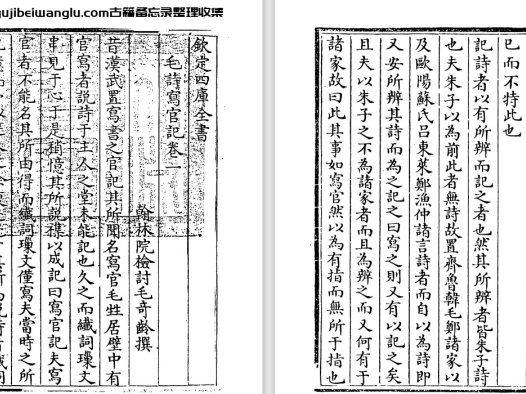 ujibeiwanglu.com古籍备忘录整理收集
已而不特此也
記詩者以有所辨而記之者也然其所辨者皆朱子詩
也夫朱子以為前此者無詩故置齊魯韓毛鄭諸家以
及歐陽蘇氏呂東萊鄭漁仲諸言詩者而自以為詩即
又安所辨其詩而為之記之曰寫之則又有以記之矣
且夫以朱子之不為諸家者而且為辨之而又何有于
諸家故曰此其事如寫官然以為有指而無所于指也
欽定四庫全書
毛詩寫官記卷一
翰林院檢討毛奇齡撰
昔漢武置寫書之官記其所聞名寫官毛甡居壁中有
官寫者說詩于主人之堂未能記也久之而纖詞璅文
串見于心于是稍憶其所說以成記曰寫官記夫寫
官者不能名其所由得而纖詞璅文僅寫夫當時之所